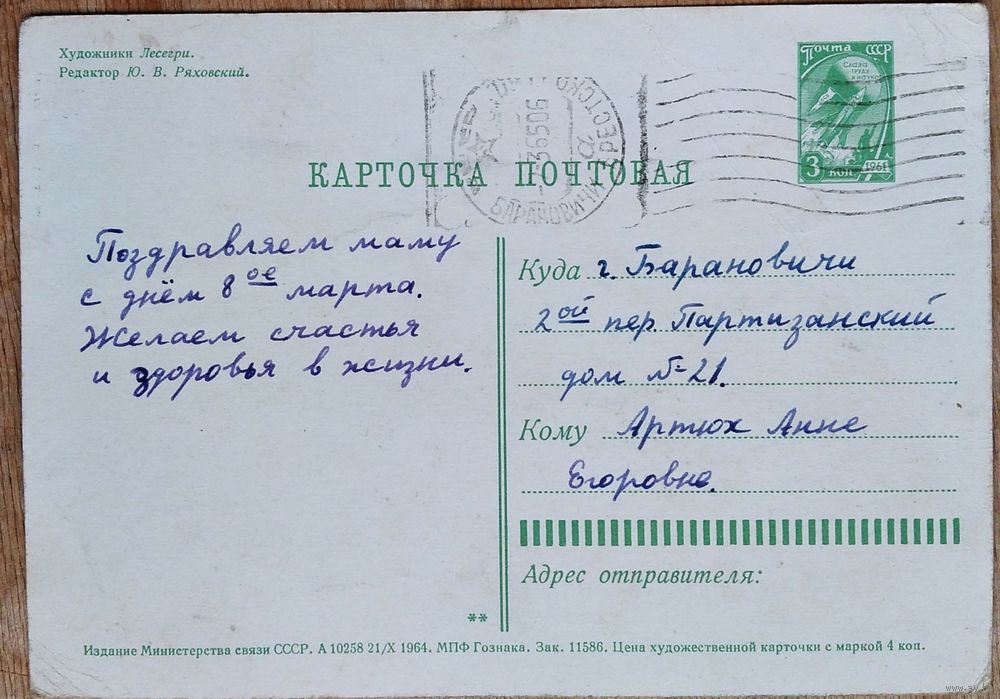 Художники Лесегри.
Редактор Ю. В. Ряховский.
Почта СССР
Слава
труду
и науке
3 коп.
1961
БАРАНОВИЧИ
КАРТОЧКА ПОЧТОВАЯ
Поздравляем маму
с днём 8ое марта.
Желаем счастья
и здоровья в жизни.
**
Куда г. Барановичи
2ой пер. Партизанский
дом №21.
Кому Артюх Анне
Егоровне.
Адрес отправителя:
Издание Министерства связи СССР. А 10258 21/X 1964. МПФ Гознака. Зак. 11586. Цена художественной карточки с маркой 4 коп.